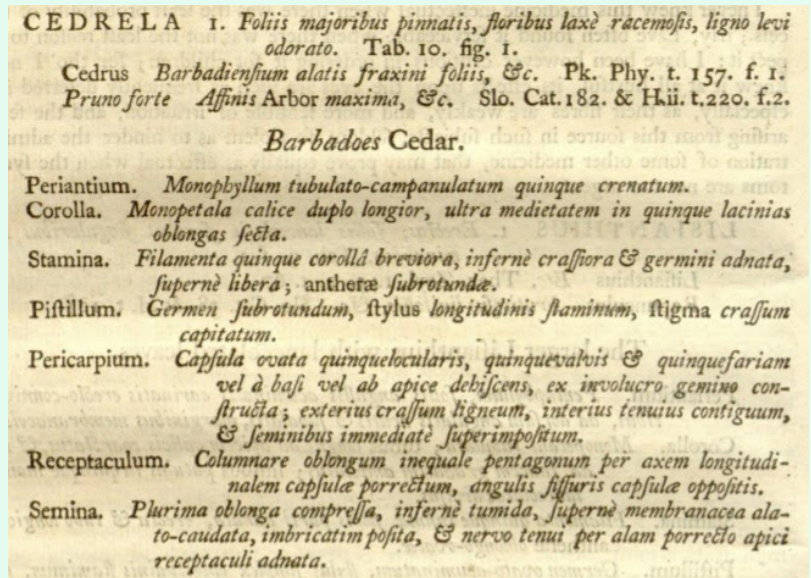 CEDRELA 1. Foliis majoribus pinnatis, floribus laxè racemoſis, ligno levi
odorato. Tab. 10. fig. 1.
Cedrus Barbadienſium alatis fraxini foliis, &c. Pk. Phy. t. 157. f. 1.
Pruno forte Affinis Arbor maxima, &c. Slo. Cat. 182. & H.ii. t.220. f.2.
Barbadoes Cedar.
Periantium. Monophyllum tubulato-campanulatum quinque crenatum.
Corolla. Monopetala calice duplo longior, ultra medietatem in quinque lacinias
oblongas ſecta.
Stamina. Filamenta quinque corollâ breviora, infernè craſſiora & germini adnata,
ſupernè libera; antheræ ſubrotundæ.
Piſtillum. Germen ſubrotundum, ſtylus longitudinis ſtaminum, ſtigma craſſum
capitatum.
Pericarpium. Capſula ovata quinquelocularis, quinquevalvis & quinquefariam
vel à baſi vel ab apice dehiſcens, ex involucro gemino con-
ſtructa; exterius craſſum ligneum, interius tenuius contiguum,
& ſeminibus immediatè ſuperimpoſitum.
Receptaculum. Columnare oblongum inequale pentagonum per axem longitudi-
nalem capſulæ porrectum, angulis fiſſuris capſulæ oppoſitis.
Semina. Plurima oblonga compreſſa, infernè tumida, ſupernè membranacea ala-
to-caudata, imbricatim poſita, & nervo tenui per alam porrecto apici
receptaculi adnata.